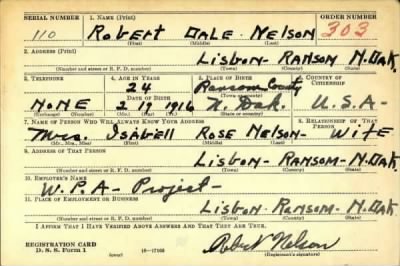 SERIAL NUMBER 1. NAME (Print) ORDER NUMBER
110 ROBERT DALE NELSON 303
(First) (Middle) (Last)
2. ADDRESS (Print)
LISBON- RANSOM N.DAK.
(Number and street or R. F. D. number) (Town) (County) (State)
3. TELEPHONE 4. AGE IN YEARS 5. PLACE OF BIRTH 6. COUNTRY OF CITIZENSHIP
24 Ransom County
(Town or county)
DATE OF BIRTH
NONE 2 19 1916 N. Dak. U.S.A-
(Exchange) (Number) (Mo.) (Day) (Yr.) (State or country)
7. NAME OF PERSON WHO WILL ALWAYS KNOW YOUR ADDRESS 8. RELATIONSHIP OF THAT PERSON
Mrs. ISABELL ROSE NELSON- WIFE
(Mr., Mrs., Miss) (First) (Middle) (Last)
9. ADDRESS OF THAT PERSON
LISBON- RANSOM- N.DAK.
(Number and street or R. F. D. number) (Town) (County) (State)
10. EMPLOYER'S NAME
W.P.A- PROJECT-
11. PLACE OF EMPLOYMENT OR BUSINESS
LISBON- RANSOM- N.DAK.
(Number and street or R. F. D. number) (Town) (County) (State)
I AFFIRM THAT I HAVE VERIFIED ABOVE ANSWERS AND THAT THEY ARE TRUE.
REGISTRATION CARD
D. S. S. Form 1 (over) Robert Nelson